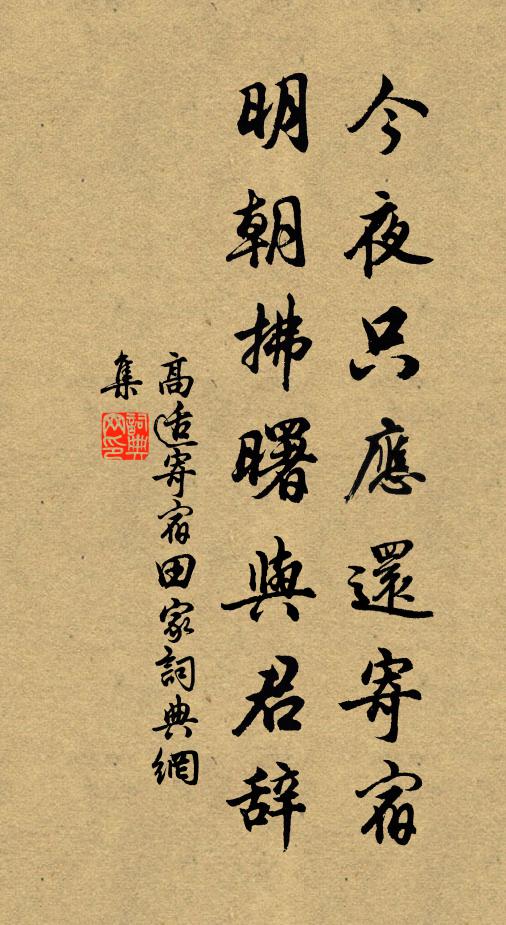 今夜只應還寄宿
明朝拂曙與君辞
高适寄宿田家詞典網
集
詞典
网印